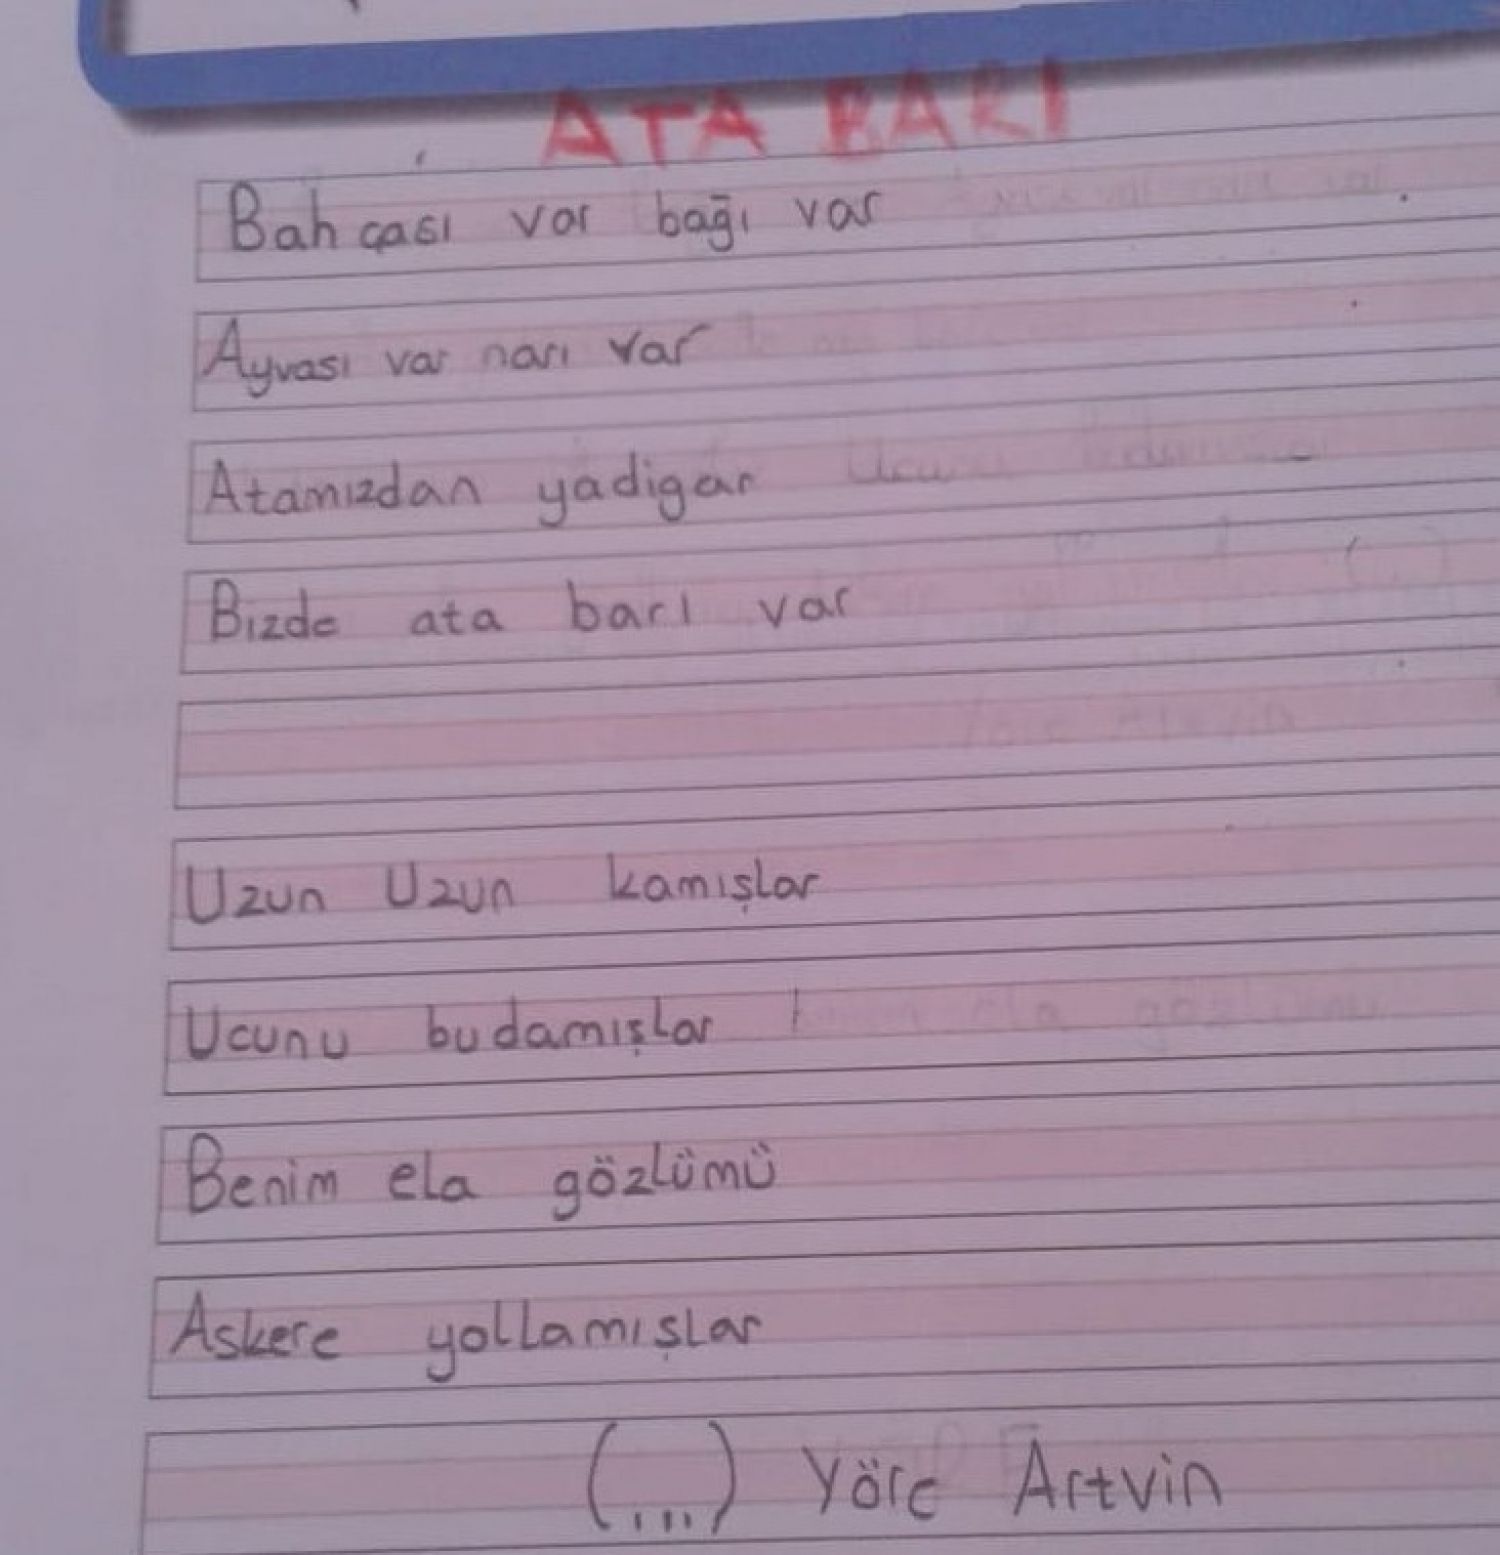 ATA BARI
Bahçası var bağı var
Ayvası var narı var
Atamızdan yadigar
Bizde ata barı var
Uzun Uzun kamışlar
Ucunu budamışlar
Benim ela gözlümü
Askere yollamışlar
(...) Yöre Artvin